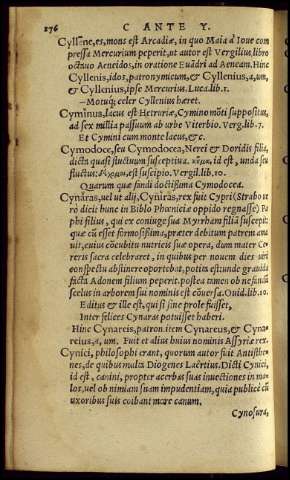 176 C ANTE Y.
Cyllēne, es, mons est Arcadiæ, in quo Maia à Ioue com
pressa Mercurium peperit, ut autor est Vergilius, libro
octauo Aeneidos, in oratione Euādri ad Aeneam. Hinc
Cyllenis, idos, patronymicum, & Cyllenius, a, um,
& Cyllenius, ipse Mercurius. Luca. lib. 1.
– Motuq; celer Cyllenius hæret.
Cyminus, lacus est Hetruriæ, Cymino mōti suppositus,
ad sex millia passuum ab urbe Viterbio. Verg. lib. 7.
Et Cymini cum monte lacus, & c.
Cymodoce, seu Cymodocea, Nerei & Doridis filia,
dicta quasi fluctuum susceptiua. κῦμα, id est, unda seu
fluctus: est suscipio. Vergil. lib. 10.
Quarum quæ fandi doctissima Cymodocea.
Cynāras, uel ut alij, Cyniras, rex fuit Cypri (Strabo ue
rò dicit hunc in Biblo Phœnicia oppido regnasse) Pa
phi filius, qui ex coniuge sua Myrrham filiā suscepit:
quæ cū esset formosissima, præter debitum patrem ama
uit, cuius cōcubitu nutricis suæ opera, dum mater Ce
reris sacra celebraret, in quibus per nouem dies uiri
conspectu abstinere oportebat, potita est: unde grauida
facta Adonem filium peperit. postea tamen ob nefandū
scelus in arborem sui nominis est cōuersa. Ouid. lib. 10.
Editus & ille est, qui si sine prole fuisset,
Inter felices Cynaras potuisset haberi.
Hinc Cynareis, patron. item Cynareus, & Cyna-
reius, a, um. Fuit et alius huius nominis Assyriæ rex.
Cynici, philosophi erant, quorum autor fuit Antisthe-
nes, de quibus multa Diogenes Laërtius. Dicti Cynici,
id est, canini, propter acerbas suas inuectiones in ma-
los, uel ob nimiam suam impudentiam, quia publicè cū
uxoribus suis coibant more canum.
Cynosura,